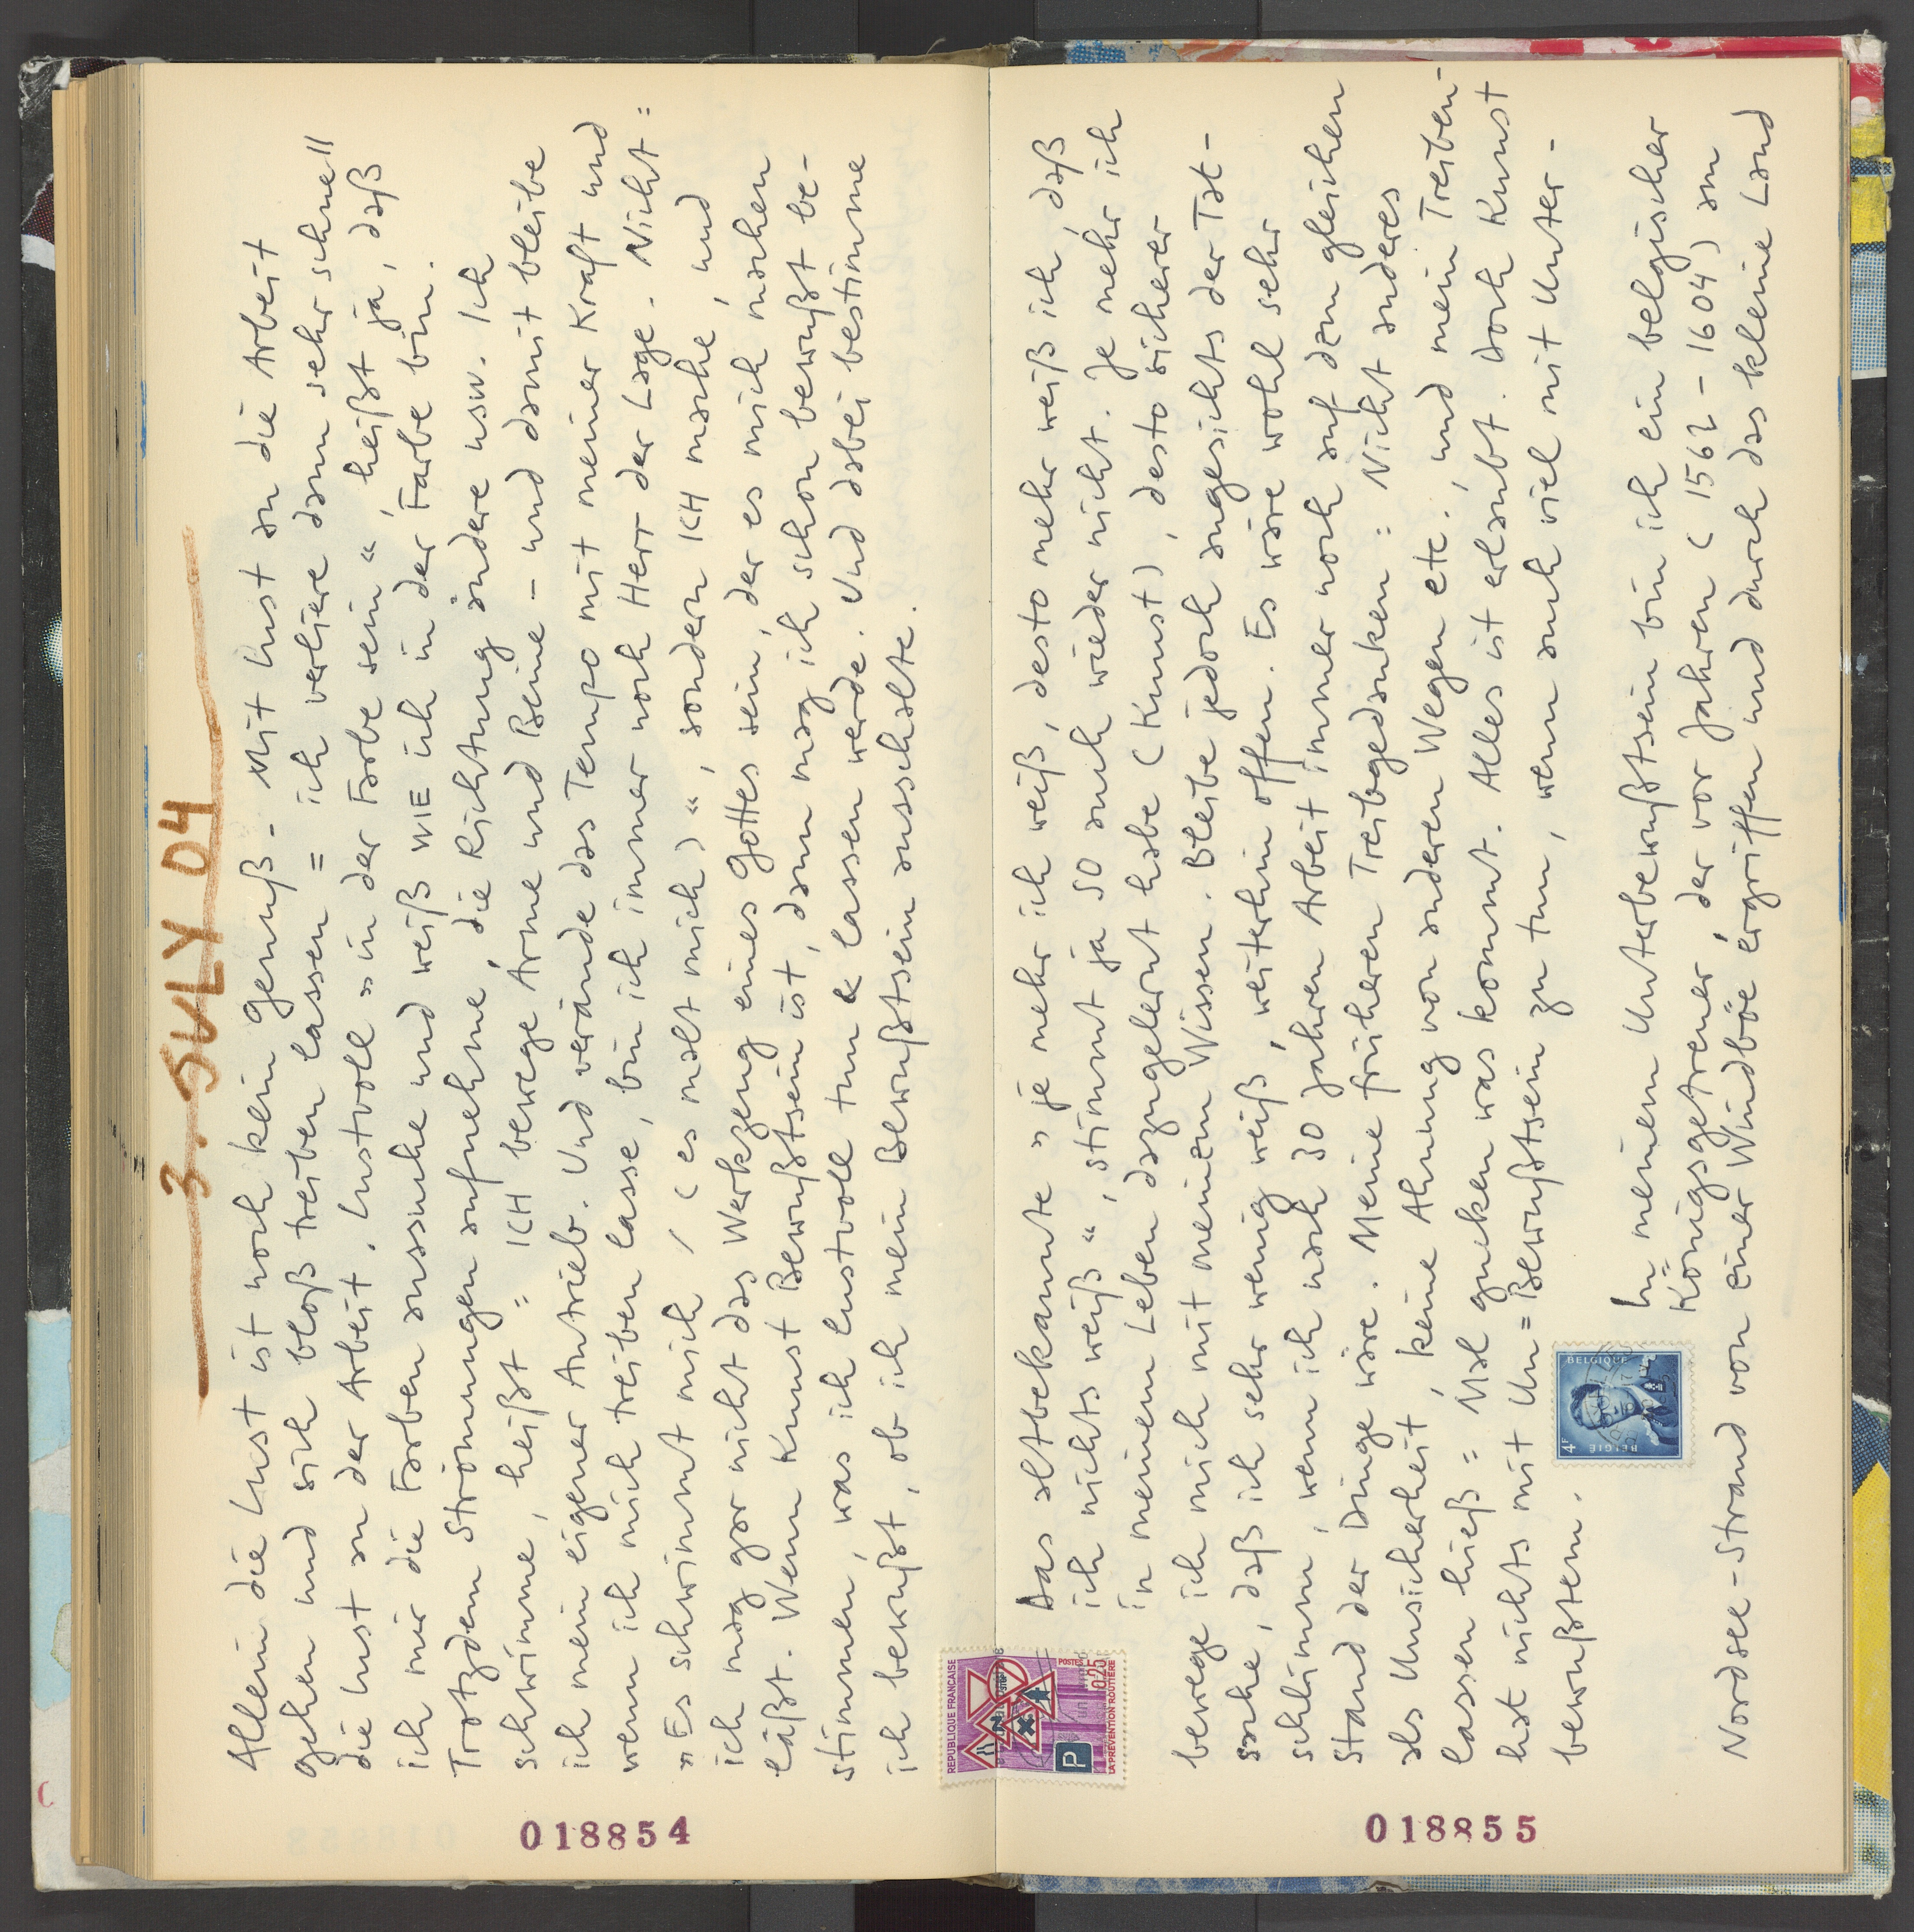 3. JULY 04
Allein die Lust ist noch kein Genuß - Mit Lust an die Arbeit
gehen und sich bloß treiben lassen = ich verliere dann sehr schnell
die Lust an der Arbeit. Lustvoll »in der Farbe sein«, heißt ja, daß
ich mir die Farben aussuche und weiß WIE ich in der Farbe bin.
Trotzdem Strömungen aufnehme, die Richtung ändere usw. Ich
schwimme, heißt = ICH bewege Arme und Beine - und damit bleibe
ich mein eigener Antrieb. Und verände das Tempo mit meiner Kraft und
wenn ich mich treiben lasse, bin ich immer noch Herr der Lage. Nicht =
»Es schwimmt mich / (es malt mich)«, sondern ICH mache, und
ich mag gar nicht das Werkzeug eines Gottes sein, der es mich machen
läßt. Wenn Kunst Bewußtsein ist, dann mag ich schon bewußt be-
stimmen, was ich lustvoll tun & lassen werde. Und dabei bestimme
ich bewußt, ob ich mein Bewußtsein ausschalte.
018854
REPUBLIQUE FRANCAISE
POSTES
0,25
LA PREVENTION ROUTIERE
STOP
P
Das altbekannte »je mehr ich weiß, desto mehr weiß ich, daß
ich nichts weiß«, stimmt ja SO auch wieder nicht. Je mehr ich
in meinem Leben dazugelernt habe (Kunst), desto sicherer
bewege ich mich mit meinem Wissen. Bleibe jedoch angesichts der Tat-
sache, daß ich sehr wenig weiß, weiterhin offen. Es wäre wohl sehr
schlimm, wenn ich nach 30 Jahren Arbeit immer noch auf dem gleichen
Stand der Dinge wäre. Meine früheren Treibgedanken = Nicht anderes
als Unsicherheit, keine Ahnung von anderen Wegen etc., und mein Treiben-
lassen hieß = Mal gucken was kommt. Alles ist erlaubt. Doch Kunst
hat nichts mit Un=Bewußtsein zu tun, wenn auch viel mit Unter-
bewußtem.
BELGIQUE
BELGIE
4F
In meinem Unterbewußtsein bin ich ein belgischer
Königsgetreuer, der vor Jahren (1562 - 1604) am
Nordsee-Strand von einer Windböe ergriffen und durch das kleine Land
018855